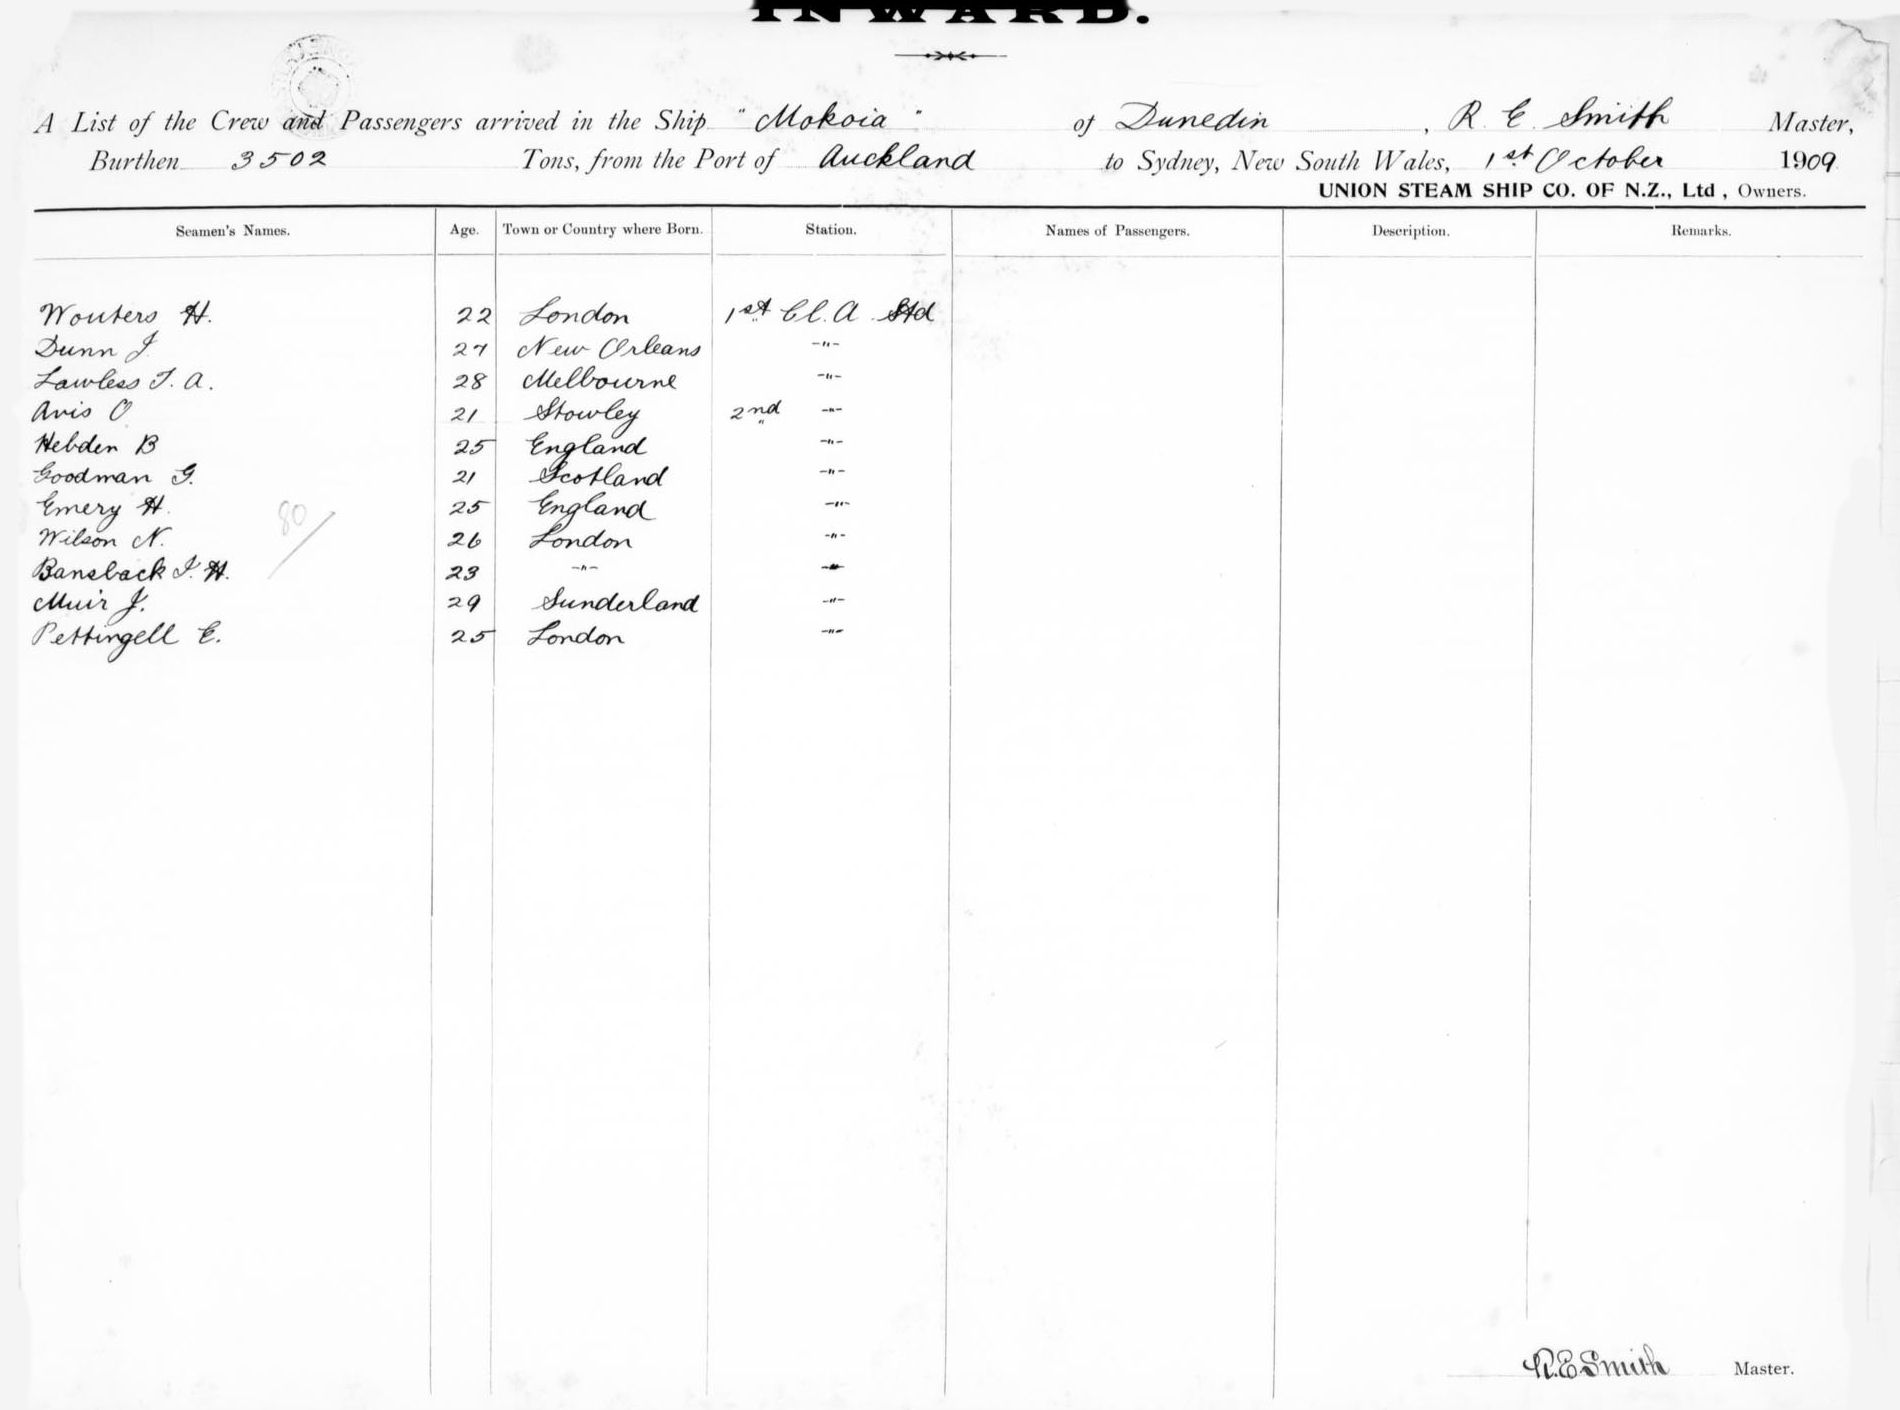 INWARD.
A List of the Crew and Passengers arrived in the Ship "Mokoia" of Dunedin, R. E. Smith Master,
Burthen 3502 Tons, from the Port of Auckland to Sydney, New South Wales, 1st October 1909
UNION STEAM SHIP CO. OF N.Z., Ltd, Owners.
Seamen's Names. Age. Town or Country where Born. Station. Names of Passengers. Description. Remarks.
Wouters H. 22 London 1st Cl. A Std
Dunn J 27 New Orleans -"-
Lawless T. A. 28 Melbourne -"-
Avis O 21 Stowley 2nd -"-
Hebden B 25 England -"-
Goodman G. 21 Scotland -"-
Emery H. 25 England -"-
80/
Wilson N. 26 London -"-
Bansback I. H. 23 -"- -"-
Muir J. 29 Sunderland -"-
Pettingell E. 25 London -"-
R.E Smith Master.